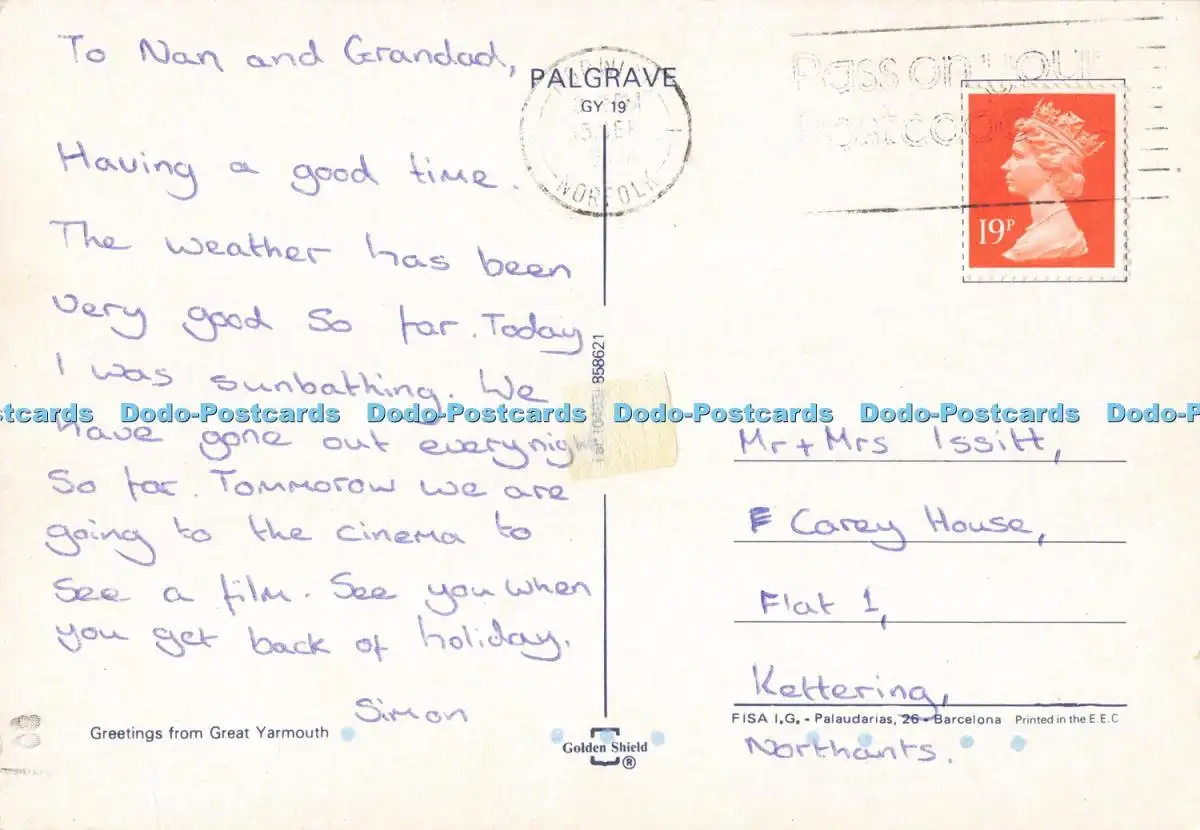 To Nan and Grandad,
Having a good time.
The weather has been
very good so far. Today
I was sunbathing. We
have gone out everynight
So far. Tommorow we are
going to the cinema to
See a film. See you when
you get back of holiday.
Simon
Greetings from Great Yarmouth
PALGRAVE
GY 19
NORFOLK
858621
Golden Shield
®
Pass on your
Postcode
19P
Mr + Mrs Issitt,
Carey House,
Flat 1,
Kettering,
FISA I.G. - Palaudarias, 26 - Barcelona Printed in the E.E.C
Northants.
Dodo-Postcards Dodo-Postcards Dodo-Postcards Dodo-Postcards